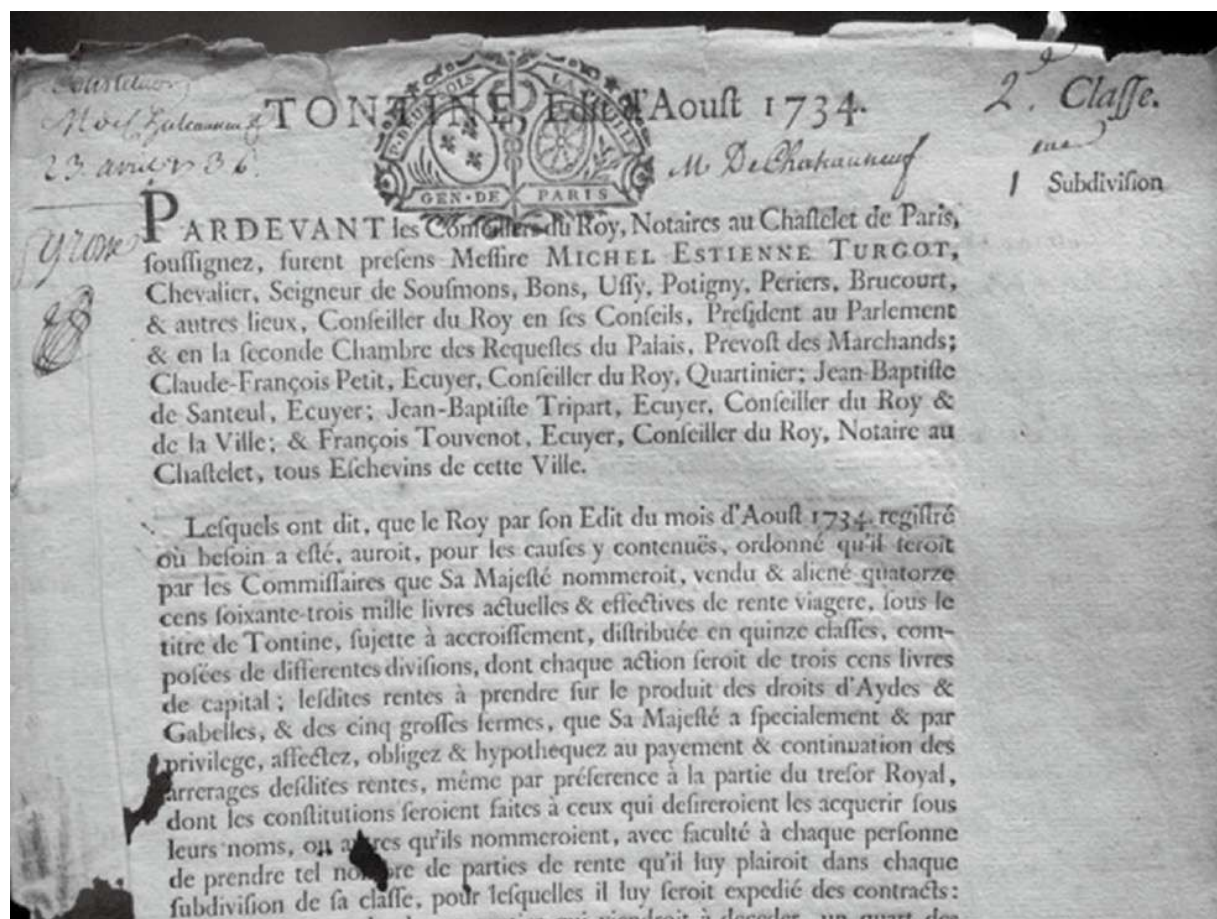 TONTINE, Edit d'Aouſt 1734.
2.e Claſſe.
23. avril 1736.
M De Chateauneuf
1 Subdiviſion
GEN·DE PARIS
PARDEVANT les Conſeillers du Roy, Notaires au Chaſtelet de Paris,
ſouſſignez, furent preſens Meſſire MICHEL ESTIENNE TURGOT,
Chevalier, Seigneur de Souſmons, Bons, Uſſy, Potigny, Periers, Brucourt,
& autres lieux, Conſeiller du Roy en ſes Conſeils, Preſident au Parlement
& en la ſeconde Chambre des Requeſtes du Palais, Prevoſt des Marchands;
Claude-François Petit, Ecuyer, Conſeiller du Roy, Quartinier; Jean-Baptiſte
de Santeul, Ecuyer; Jean-Baptiſte Tripart, Ecuyer, Conſeiller du Roy &
de la Ville; & François Touvenot, Ecuyer, Conſeiller du Roy, Notaire au
Chaſtelet, tous Eſchevins de cette Ville.
Leſquels ont dit, que le Roy par ſon Edit du mois d'Aouſt 1734. regiſtré
où beſoin a eſté, auroit, pour les cauſes y contenuës, ordonné qu'il ſeroit
par les Commiſſaires que Sa Majeſté nommeroit, vendu & aliené quatorze
cens ſoixante-trois mille livres actuelles & effectives de rente viagere, ſous le
titre de Tontine, ſujette à accroiſſement, diſtribuée en quinze claſſes, com-
poſées de differentes diviſions, dont chaque action ſeroit de trois cens livres
de capital; leſdites rentes à prendre ſur le produit des droits d'Aydes &
Gabelles, & des cinq groſſes fermes, que Sa Majeſté a ſpecialement & par
privilege, affectez, obligez & hypothequez au payement & continuation des
arrerages deſdites rentes, même par préference à la partie du treſor Royal,
dont les conſtitutions ſeroient faites à ceux qui deſireroient les acquerir ſous
leurs noms, ou autres qu'ils nommeroient, avec faculté à chaque perſonne
de prendre tel nombre de parties de rente qu'il luy plairoit dans chaque
ſubdiviſion de ſa claſſe, pour leſquelles il luy ſeroit expedié des contracts:
qui viendroit à deceder, un quart des